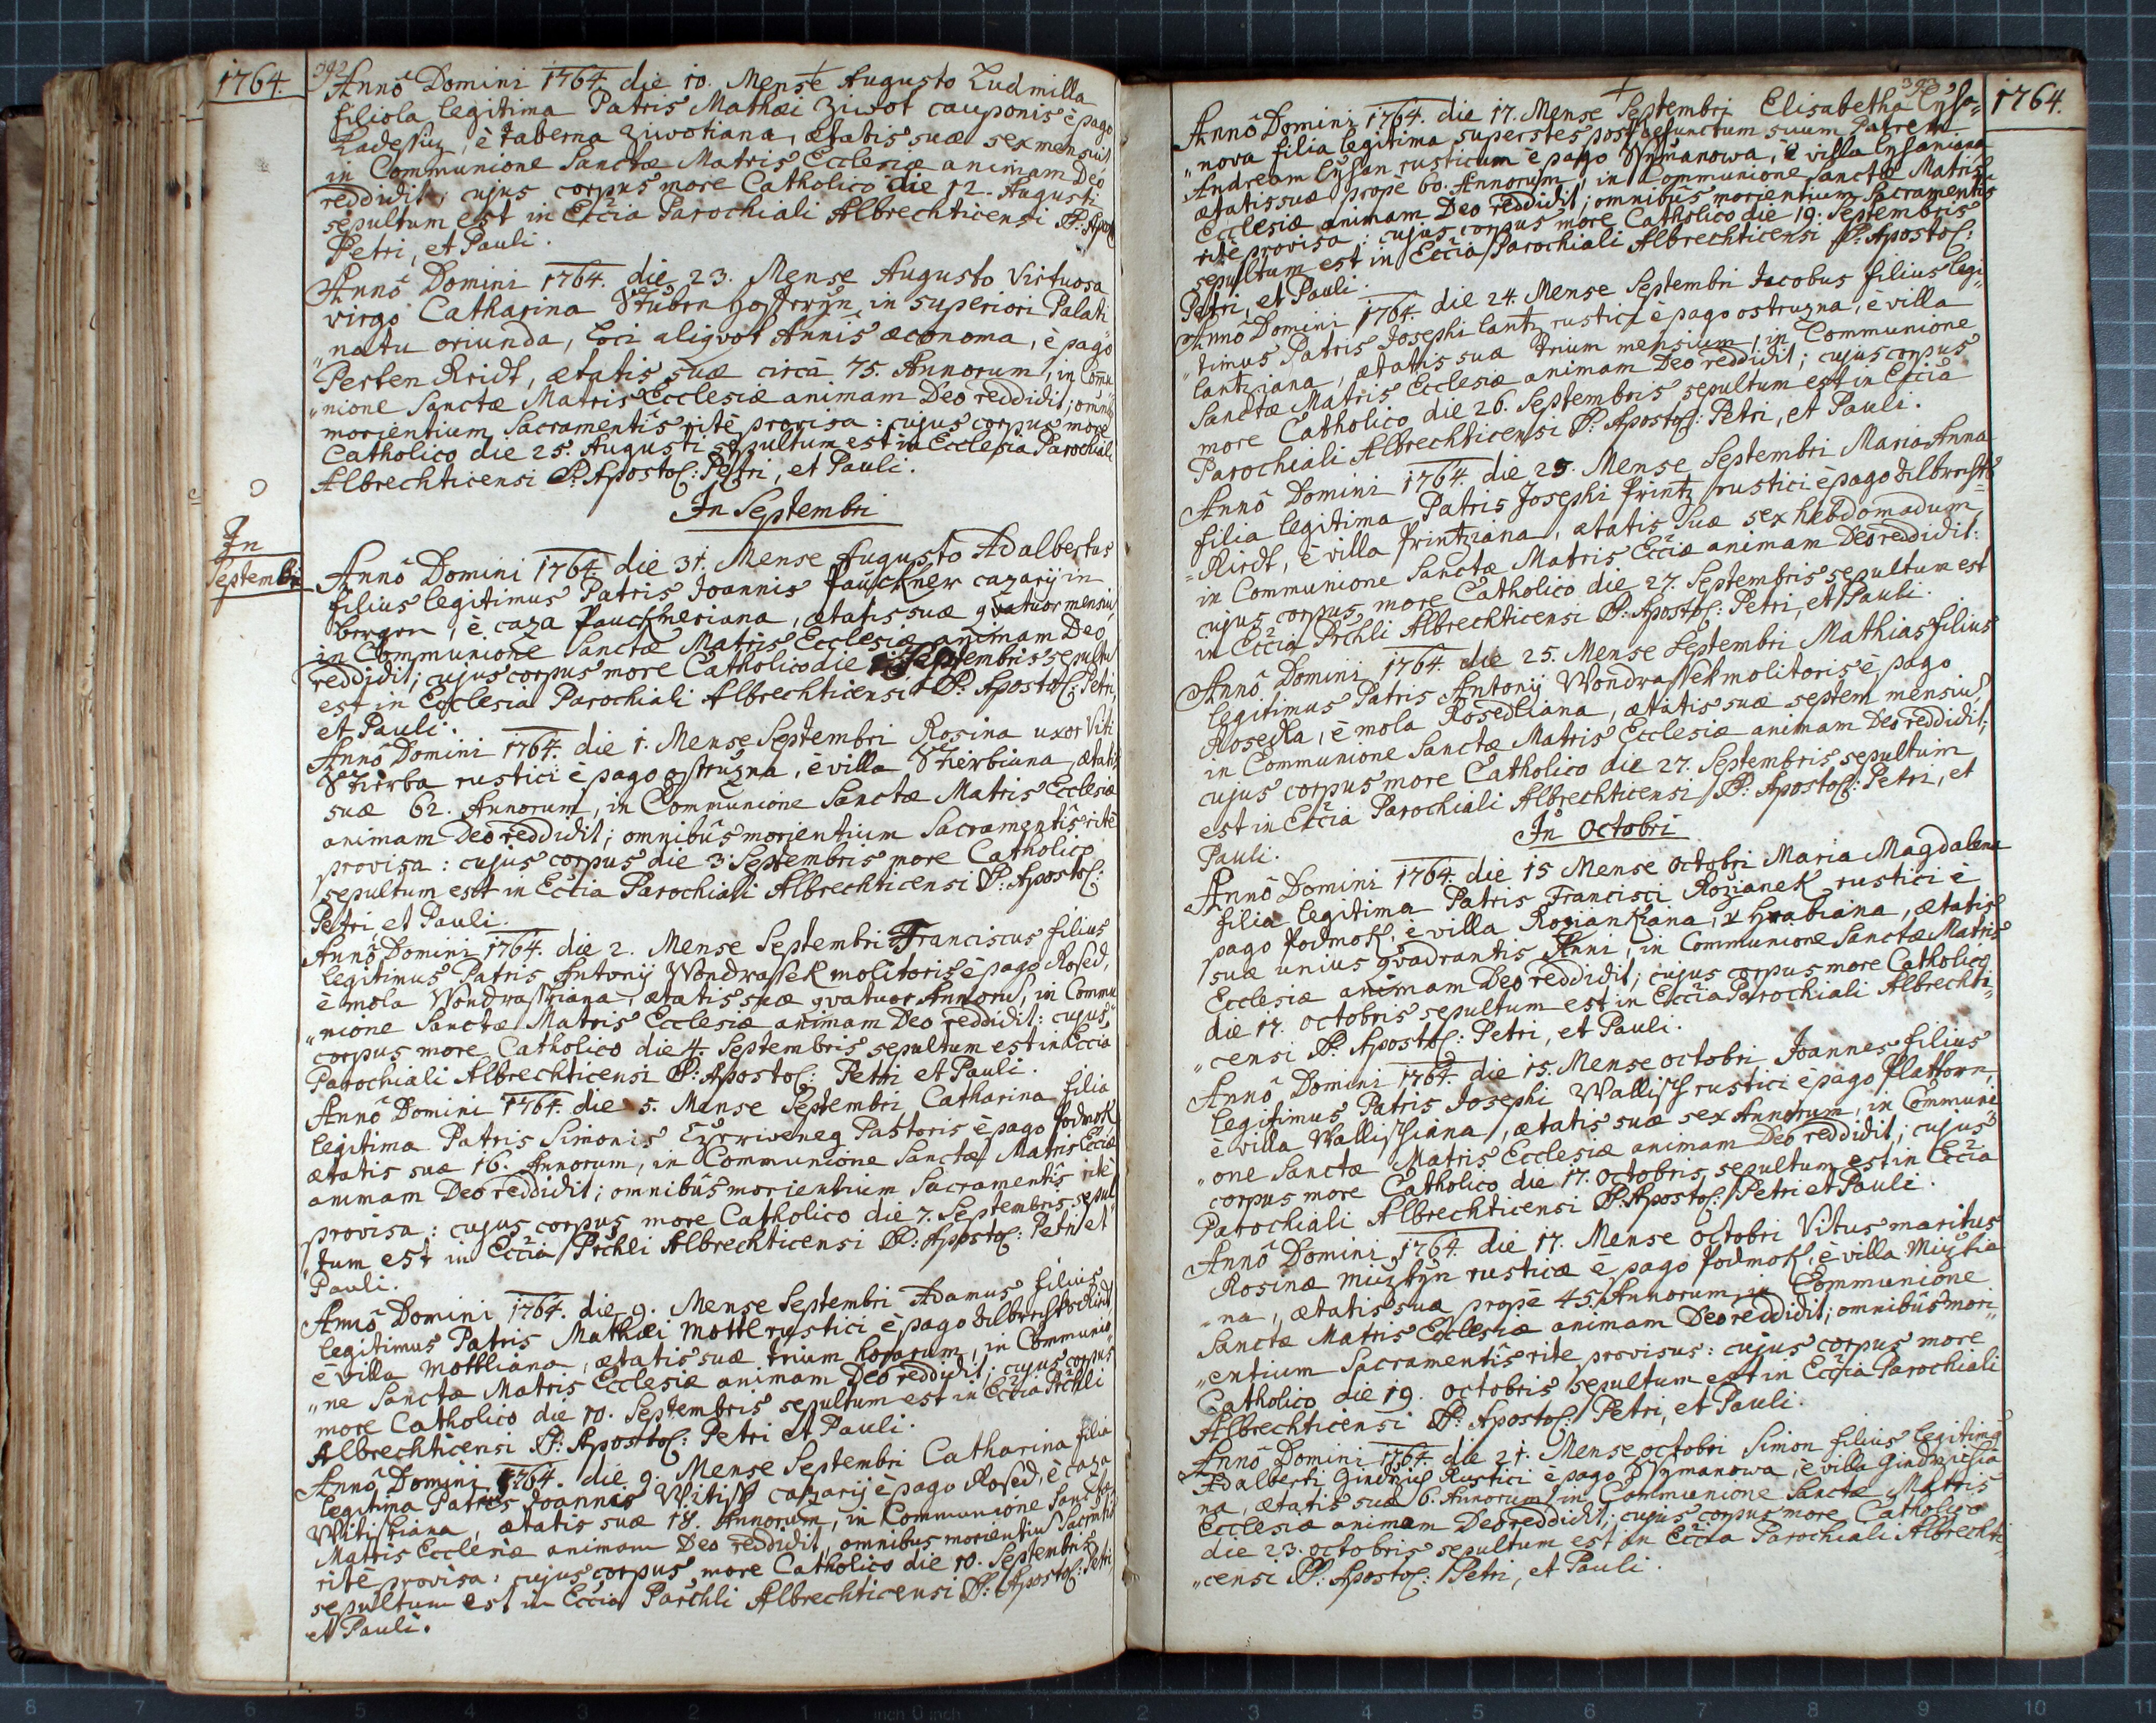 1764.
392
Annô Domini 1764. die 10. Mense Augusto Ludmilla
filiola legitima Patris Mathæi Ziwot cauponis è pago
è taberna Ziwotiana, ætatis suæ sex mensiũ
in Communione Sanctæ Matris Ecclesiæ animam Deo
reddidit; cujus corpus more Catholico die 12. Augusti
sepultum est in Eccia Parochiali Albrechticensi SS: Apost
Petri, et Pauli.
Annô Domini 1764. die 23. Mense Augusto Virtuosa
virgo Catharina in superiori Palati
"natu oriunda, aliqvot Annis œconoma, è pago
ætatis suæ circà 75. Annorum, in Comu
"nione Sanctæ Matris Ecclesiæ animam Deo reddidit; omnibꝰ
morientium Sacramentis ritè provisa: cujus corpus more
Catholico die 25. Augusti sepultum est in Ecclesia Parochiali
Albrechticensi SS. Apostol: Petri, et Pauli.
In Septembri
In
Septembri
Annô Domini 1764. die 31. Mense Augusto Adalbertus
filius legitimus Patris Joannis Pauckner cazarij in
bergen, è caza Paucknesiana, ætatis suæ qvatuor mensiũ,
in Communione Sanctæ Matris Ecclesiæ animam Deo
reddidit; cujus corpus more Catholico die Septembris sepultũ
est in Ecclesia Parochiali Albrechticensi SS: Apostol: Petri,
et Pauli.
Annô Domini 1764. die 1. Mense Septembri Rosina uxor Viti
Stierba rustici è pago ostružna, è villa Stierbiana, ætatis
suæ 62. Annorum, in Communione Sanctæ Matris Ecclesiæ
animam Deo reddidit; omnibûs morientium Sacramentis ritè
provisa: cujus corpus die 3. Septembris more Catholico
sepultum est in Eccia Parochiali Albrechticensi SS: Apostol:
Petri et Pauli.
Annô Domini 1764. die 2. Mense Septembri Franciscus filius
legitimus Patris Antonij Wondrassek molitoris è pago Rosed,
è mola Wondrasskiana, ætatis suæ qvatuor Annorũ, in Commu
"nione Sanctæ Matris Ecclesiæ animam Deo reddidit: cujus
corpus more Catholico die 4. Septembris sepultum est in Eccia
Parochiali Albrechticensi SS: Apostol: Petri et Pauli.
Annô Domini 1764. die 5. Mense Septembri Catharina filia
legitima Patris Simonis Czerweneg Pastoris è pago Podmok
ætatis suæ 16. Annorum, in Communione Sanctæ Matris Ecciæ
animam Deo reddidit; omnibûs morientium Sacramentis ritè
provisa: cujus corpus more Catholico die 7. Septembris sepul
"tum est in Eccia Prchli Albrechticensi SS: Apostol: Petri et
Pauli.
Annô Domini 1764. die 9. Mense Septembri Adamus filius
legitimus Patris Mathæi Mottl rustici è pago Albrechtsriedt
è villa Mottliana, ætatis suæ trium horarum, in Communio
"ne Sanctæ Matris Ecclesiæ animam Deo reddidit; cujus corpus
more Catholico die 10. Septembris sepultum est in Eccia Prchli
Albrechticensi SS: Apostol: Petri et Pauli.
Annô Domini 1764. die 9. Mense Septembri Catharina filia
legitima Patris Joannis Witissk cazarij è pago Rosed, è caza
Witisskiana, ætatis suæ 18. Annorum, in Communione Sanctæ
Matris Ecclesiæ animam Deo reddidit, omnibus morientiũ Sacrmtis
ritè provisa: cujus corpus more Catholico die 10. Septembris
sepultum est in Eccia Parchli Albrechticensi SS: Apostol: Petri,
et Pauli.
393
1764.
Annô Domini 1764. die 17. Mense Septembri Elisabetha Cysa=
"nova filia legitima superstes post defunctum suum Patrem
Andream Cysan rusticum è pago Wymanowa, è villa Cysaniana
ætatis suæ propè 60. Annorum, in Communione Sanctæ Matris
Ecclesiæ animam Deo reddidit; omnibûs morientium Sacramentis
ritè provisa: cujus corpus more Catholico die 19. Septembris
sepultum est in Eccia Parochiali Albrechticensi SS: Apostol:
Petri, et Pauli.
Annô Domini 1764. die 24. Mense Septembri Jacobus filius legi
"timus Patris Josephi Lantz rustici è pago ostružna, è villa
Lantziana, ætatis suæ trium mensium, in Communione
Sanctæ Matris Ecclesiæ animam Deo reddidit; cujus corpus
more Catholico die 26. Septembris sepultum est in Eccia
Parochiali Albrechticensi SS: Apostol: Petri, et Pauli.
Annô Domini 1764. die 25. Mense Septembri Maria Anna
filia legitima Patris Josephi Printz rustici è pago Albrechts
=Riedt, è villa Printziana, ætatis suæ sex hebdomadum,
in Communione Sanctæ Matris Ecciæ animam Deo reddidit:
cujus corpus more Catholico die 27. Septembris sepultum est
in Eccia Prchli Albrechticensi SS: Apostol: Petri, et Pauli.
Annô Domini 1764. die 25. Mense Septembri Mathias filius
legitimus Patris Antonij Wondrassek molitoris è pago
Rosedla, è mola Rosedliana, ætatis suæ septem mensiũ,
in Communione Sanctæ Matris Ecclesiæ animam Deo reddidit;
cujus corpus more Catholico die 27. Septembris sepultum
est in Eccia Parochiali Albrechticensi SS: Apostol: Petri, et
Pauli.
In Octobri
Annô Domini 1764. die 15 Mense octobri Maria Magdalena
filia legitima Patris Francisci Rozianek rustici è
pago Podmok, è villa Roziankiana, Hrabiana, ætatis
suæ unius qvadrantis Anni, in Communione Sanctæ Matris
Ecclesiæ animam Deo reddidit; cujus corpus more Catholico
die 17. octobris sepultum est in Eccia Parochiali Albrechti
"censi SS. Apostol: Petri, et Pauli.
Annô Domini 1764. die 15. Mense octobri Joannes filius
legitimus Patris Josephi Wallisch rustici è pago Plattorn,
è villa Wallischiana, ætatis suæ sex Annorum, in Communi
"one Sanctæ Matris Ecclesiæ animam Deo reddidit; cujus
corpus more Catholico die 17. octobris sepultum est in Eccia
Parochiali Albrechticensi SS. Apostol: Petri et Pauli.
Annô Domini 1764. die 17. Mense octobri Vitus maritus
Rosinæ rusticæ è pago Podmok, è villa
"na, ætatis suæ propè 45. Annorum, in Communione
Sanctæ Matris Ecclesiæ animam Deo reddidit; omnibûs mori
"entium Sacramentis rite provisus: cujus corpus more
Catholico die 19. octobris sepultum est in Eccia Parochiali
Albrechticensi SS: Apostol: Petri, et Pauli.
Annô Domini 1764. die 21. Mense octobri Simon filius legitimꝰ
Adalberti Rustici è pago Wymanowa, è villa
na, ætatis suæ 6. Annorum, in Communione Sanctæ Matris
Ecclesiæ animam Deo reddidit; cujus corpus more Catholico
die 23. octobris sepultum est in Eccia Parochiali Albrechti
"censi SS: Apostol: Petri, et Pauli.
8 7 6 5 4 3 2 1 inch 0 inch 1 2 3 4 5 6 7 8 9 10 11